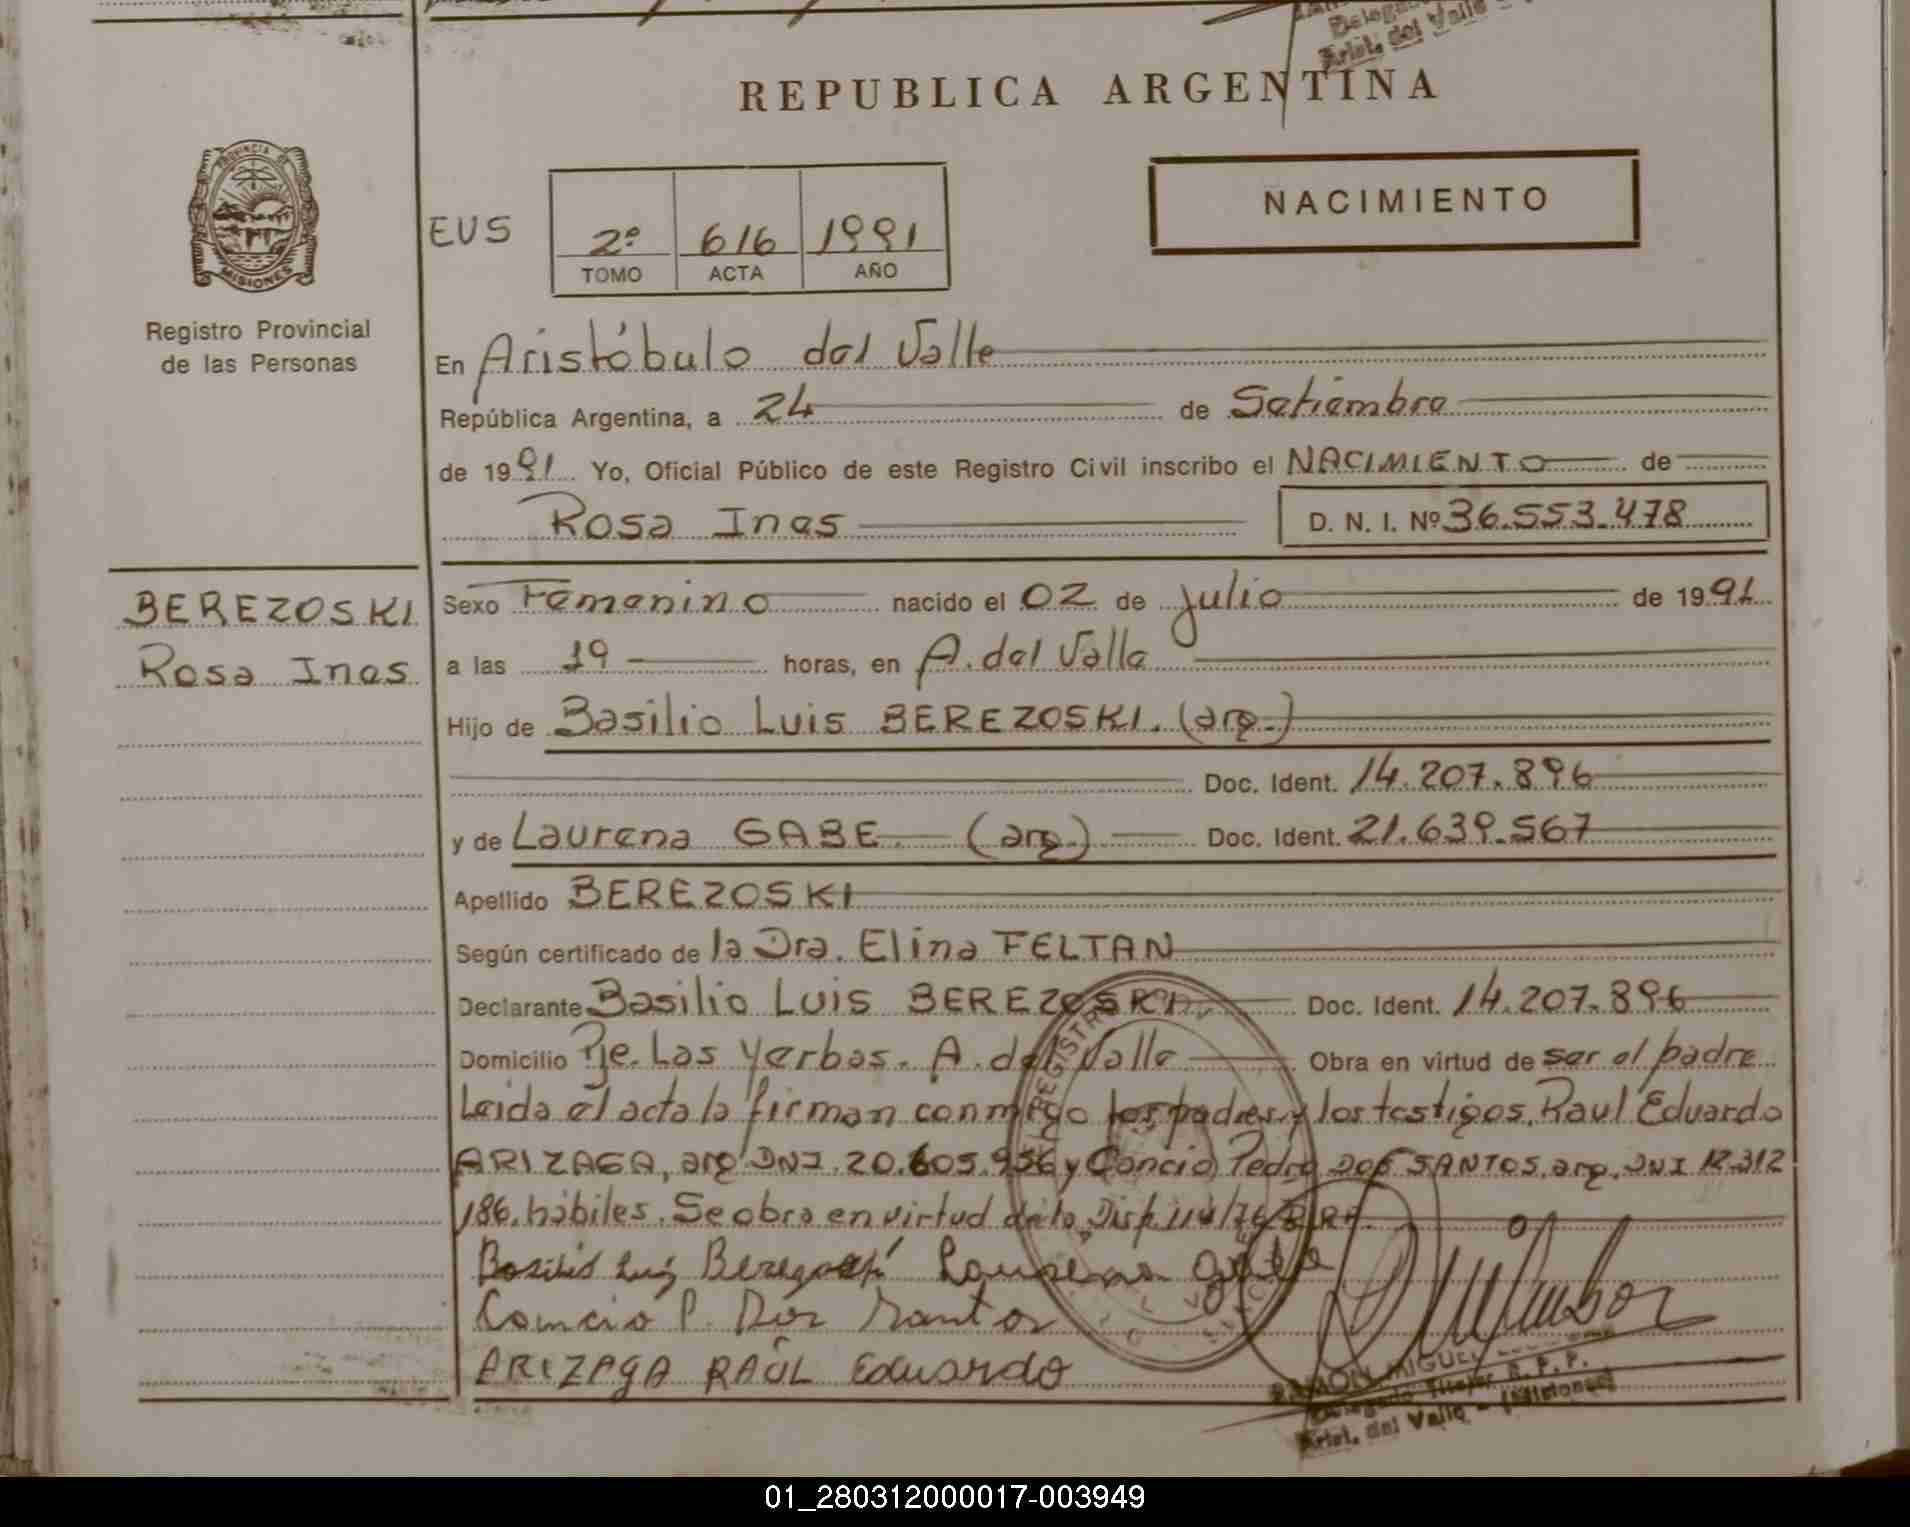 Delega
Arist. del Valle -
REPUBLICA ARGENTINA
PROVINCIA DE
MISIONES
Registro Provincial
de las Personas
EUS
2º 616 1991
TOMO ACTA AÑO
NACIMIENTO
En Aristóbulo del Valle
República Argentina, a 24 de Setiembre
de 1991. Yo, Oficial Público de este Registro Civil inscribo el NACIMIENTO de
Rosa Ines
D. N. I. Nº 36.553.478
BEREZOSKI
Rosa Ines
Sexo Femenino nacido el 02 de julio de 1991
a las 19 horas, en A. del Valle
Hijo de Basilio Luis BEREZOSKI. (arg.)
Doc. Ident. 14.207.896
y de Laurena GABE. (arg.) Doc. Ident. 21.639.567
Apellido BEREZOSKI
Según certificado de la Dra. Elina FELTAN
Declarante Basilio Luis BEREZOSKI Doc. Ident. 14.207.896
Domicilio Pje. Las Yerbas. A. del Valle Obra en virtud de ser el padre
Leida el acta la firman conmigo los padres y los testigos, Raul Eduardo
ARIZAGA, arg DNI. 20.605.956 y Concio Pedro DOS SANTOS, arg. DNI 12.312
186, hábiles. Se obra en virtud de la Disp. 114/76 R.R.P.
Basilio Luis Laurena gabe
Concio P. Dos Santos
ARIZAgA RAÚL Eduardo
REGISTRO
RAMON MIGUEL
Delegado Titular R. P. P.
Arist. del Valle - (Misiones)
01_280312000017-003949